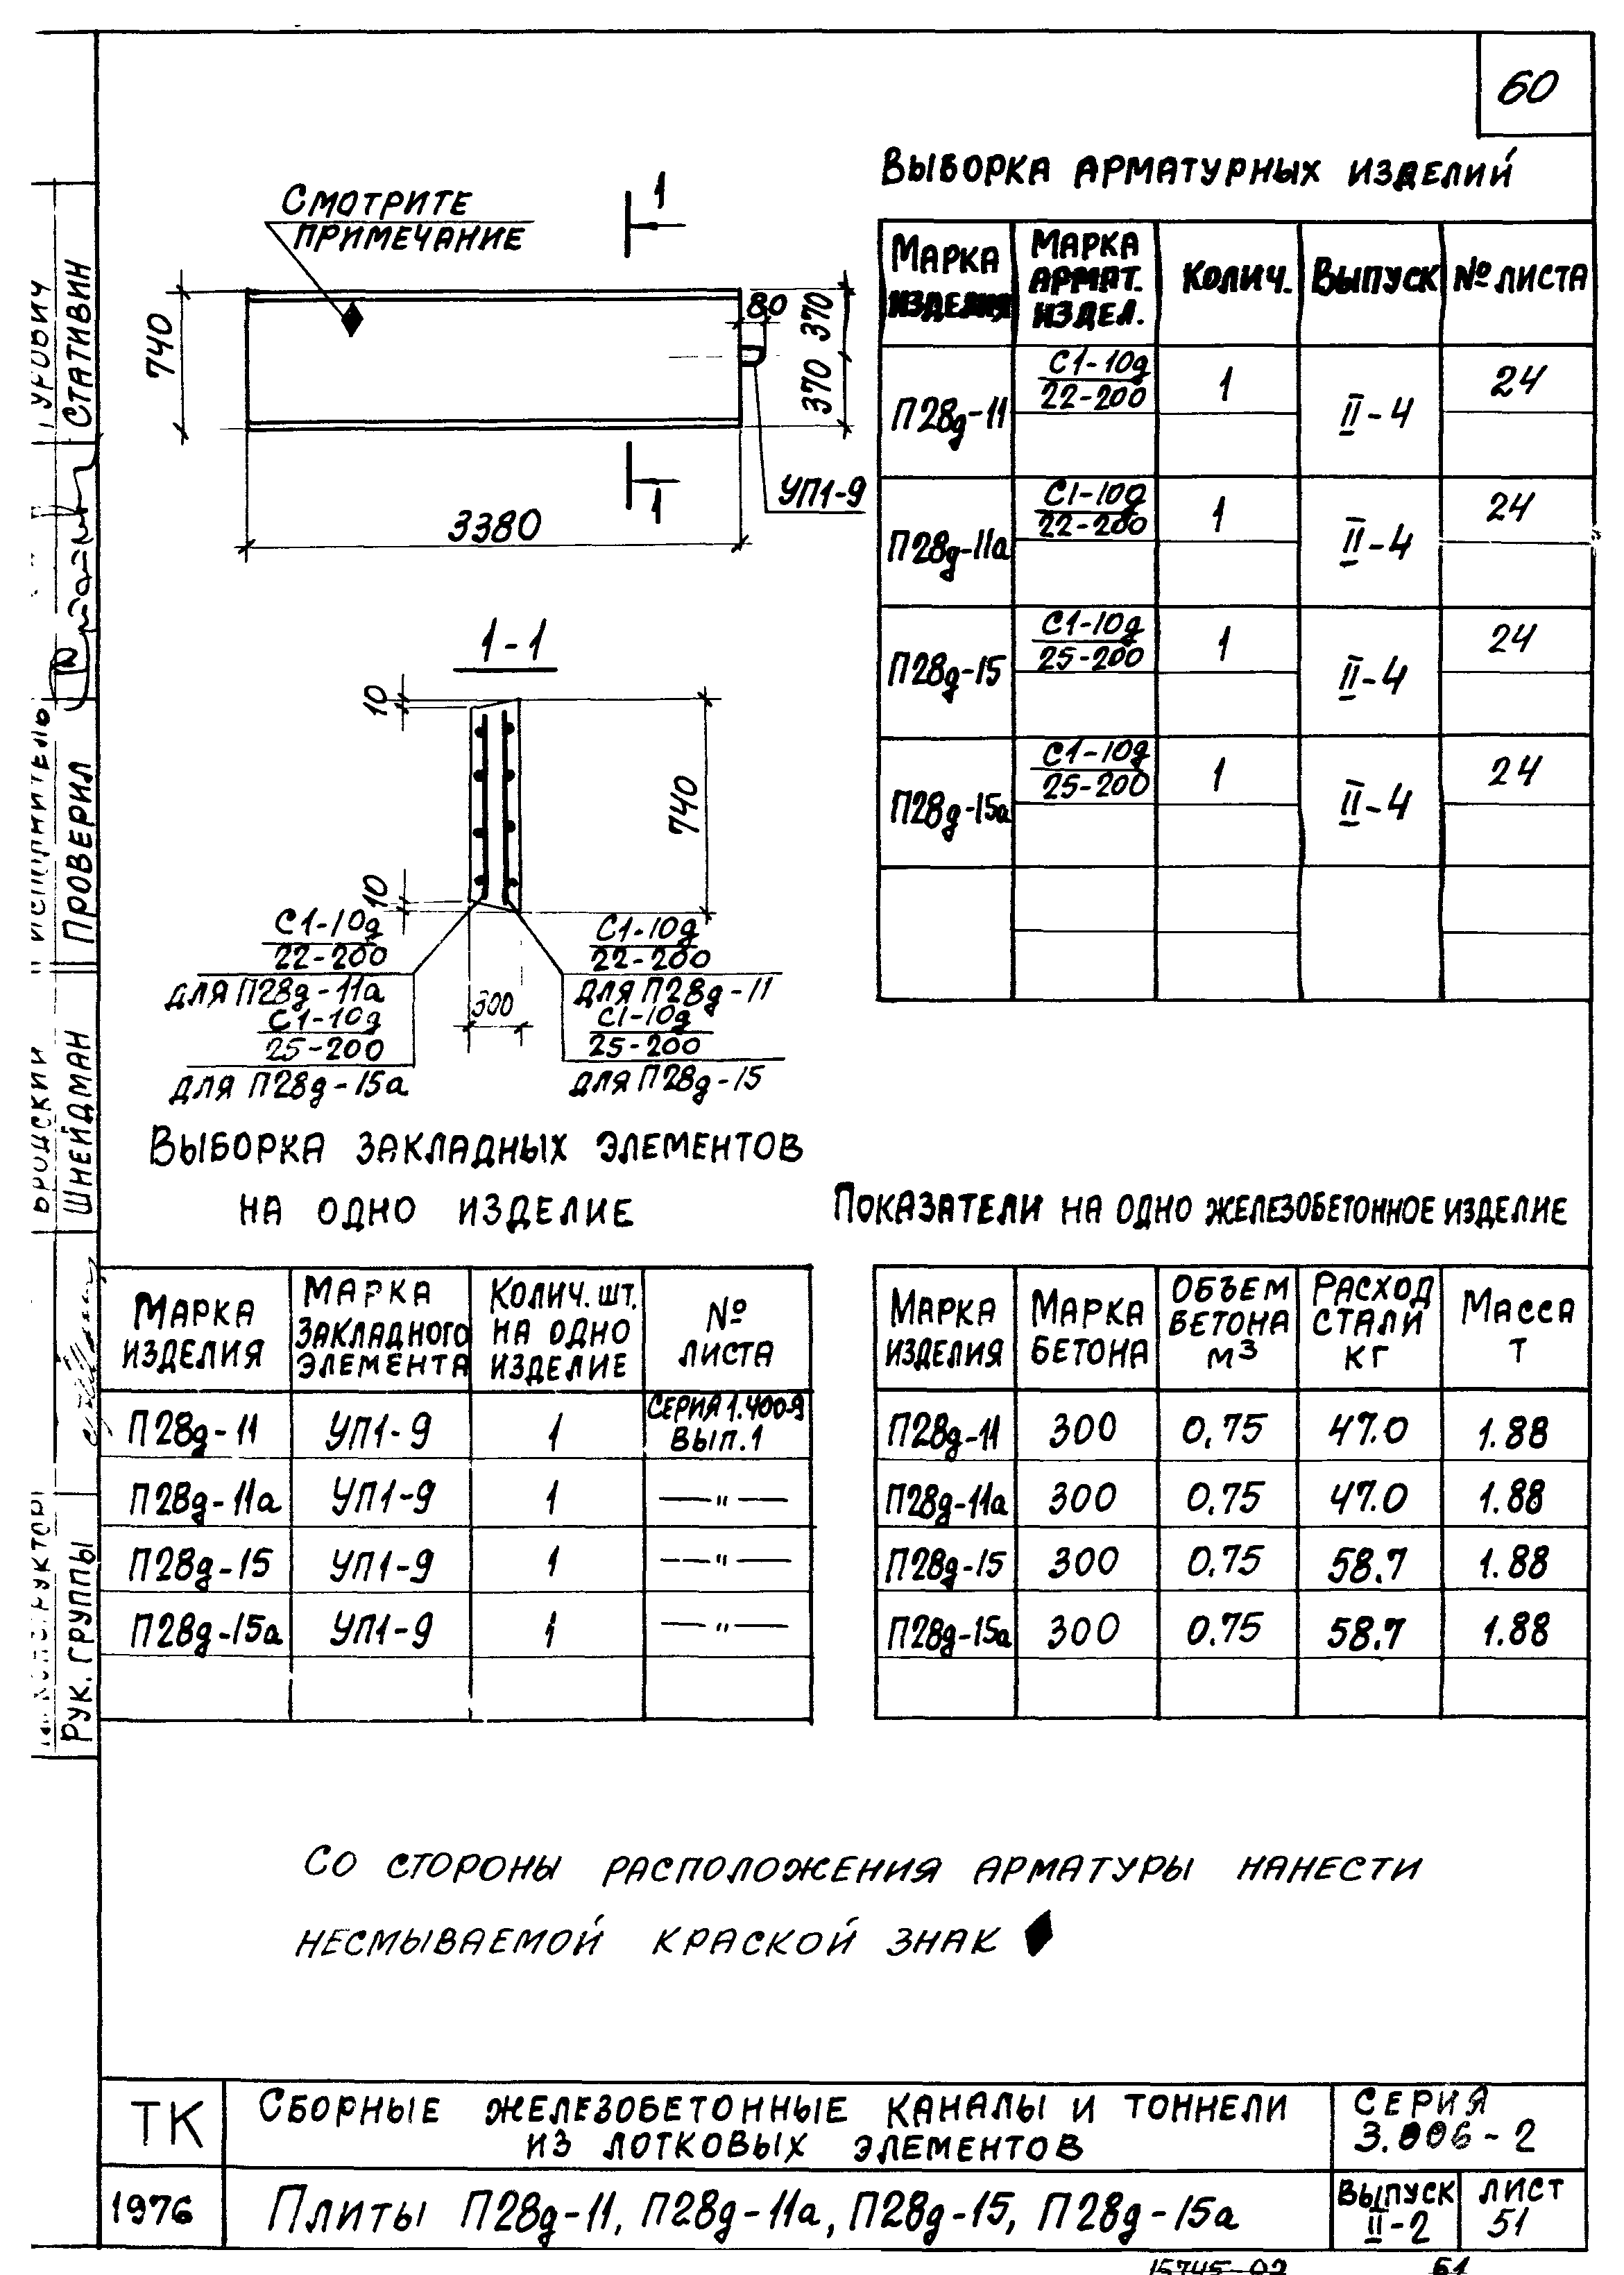 60
СМОТРИТЕ
ПРИМЕЧАНИЕ
1
740
80
370
370
УП1-9
1
3380
1-1
10
740
10
С1-10д
22-200
ДЛЯ П28д-11а
С1-10д
25-200
ДЛЯ П28д-15а
300
С1-10д
22-200
ДЛЯ П28д-11
С1-10д
25-200
ДЛЯ П28д-15
ВЫБОРКА АРМАТУРНЫХ ИЗДЕЛИЙ
МАРКА ИЗДЕЛИЯ
МАРКА АРМАТ. ИЗДЕЛ.
КОЛИЧ.
ВЫПУСК
№ ЛИСТА
П28д-11 С1-10д 22-200 1 II-4 24
П28д-11а С1-10д 22-200 1 II-4 24
П28д-15 С1-10д 25-200 1 II-4 24
П28д-15а С1-10д 25-200 1 II-4 24
ВЫБОРКА ЗАКЛАДНЫХ ЭЛЕМЕНТОВ
НА ОДНО ИЗДЕЛИЕ
МАРКА ИЗДЕЛИЯ
МАРКА ЗАКЛАДНОГО ЭЛЕМЕНТА
КОЛИЧ. ШТ. НА ОДНО ИЗДЕЛИЕ
№ ЛИСТА
П28д-11 УП1-9 1 СЕРИЯ 1.400-9 ВЫП.1
П28д-11а УП1-9 1 —"—
П28д-15 УП1-9 1 —"—
П28д-15а УП1-9 1 —"—
ПОКАЗАТЕЛИ НА ОДНО ЖЕЛЕЗОБЕТОННОЕ ИЗДЕЛИЕ
МАРКА ИЗДЕЛИЯ
МАРКА БЕТОНА
ОБЪЕМ БЕТОНА М3
РАСХОД СТАЛИ КГ
МАССА Т
П28д-11 300 0.75 47.0 1.88
П28д-11а 300 0.75 47.0 1.88
П28д-15 300 0.75 58.7 1.88
П28д-15а 300 0.75 58.7 1.88
СО СТОРОНЫ РАСПОЛОЖЕНИЯ АРМАТУРЫ НАНЕСТИ
НЕСМЫВАЕМОЙ КРАСКОЙ ЗНАК
ТК
СБОРНЫЕ ЖЕЛЕЗОБЕТОННЫЕ КАНАЛЫ И ТОННЕЛИ
ИЗ ЛОТКОВЫХ ЭЛЕМЕНТОВ
СЕРИЯ
3.006-2
1976
ПЛИТЫ П28д-11, П28д-11а, П28д-15, П28д-15а
ВЫПУСК
II-2
ЛИСТ
51
15745-02
61
СТАТИВИН
ПРОВЕРИЛ
ШНЕЙДМАН
РУК. ГРУППЫ